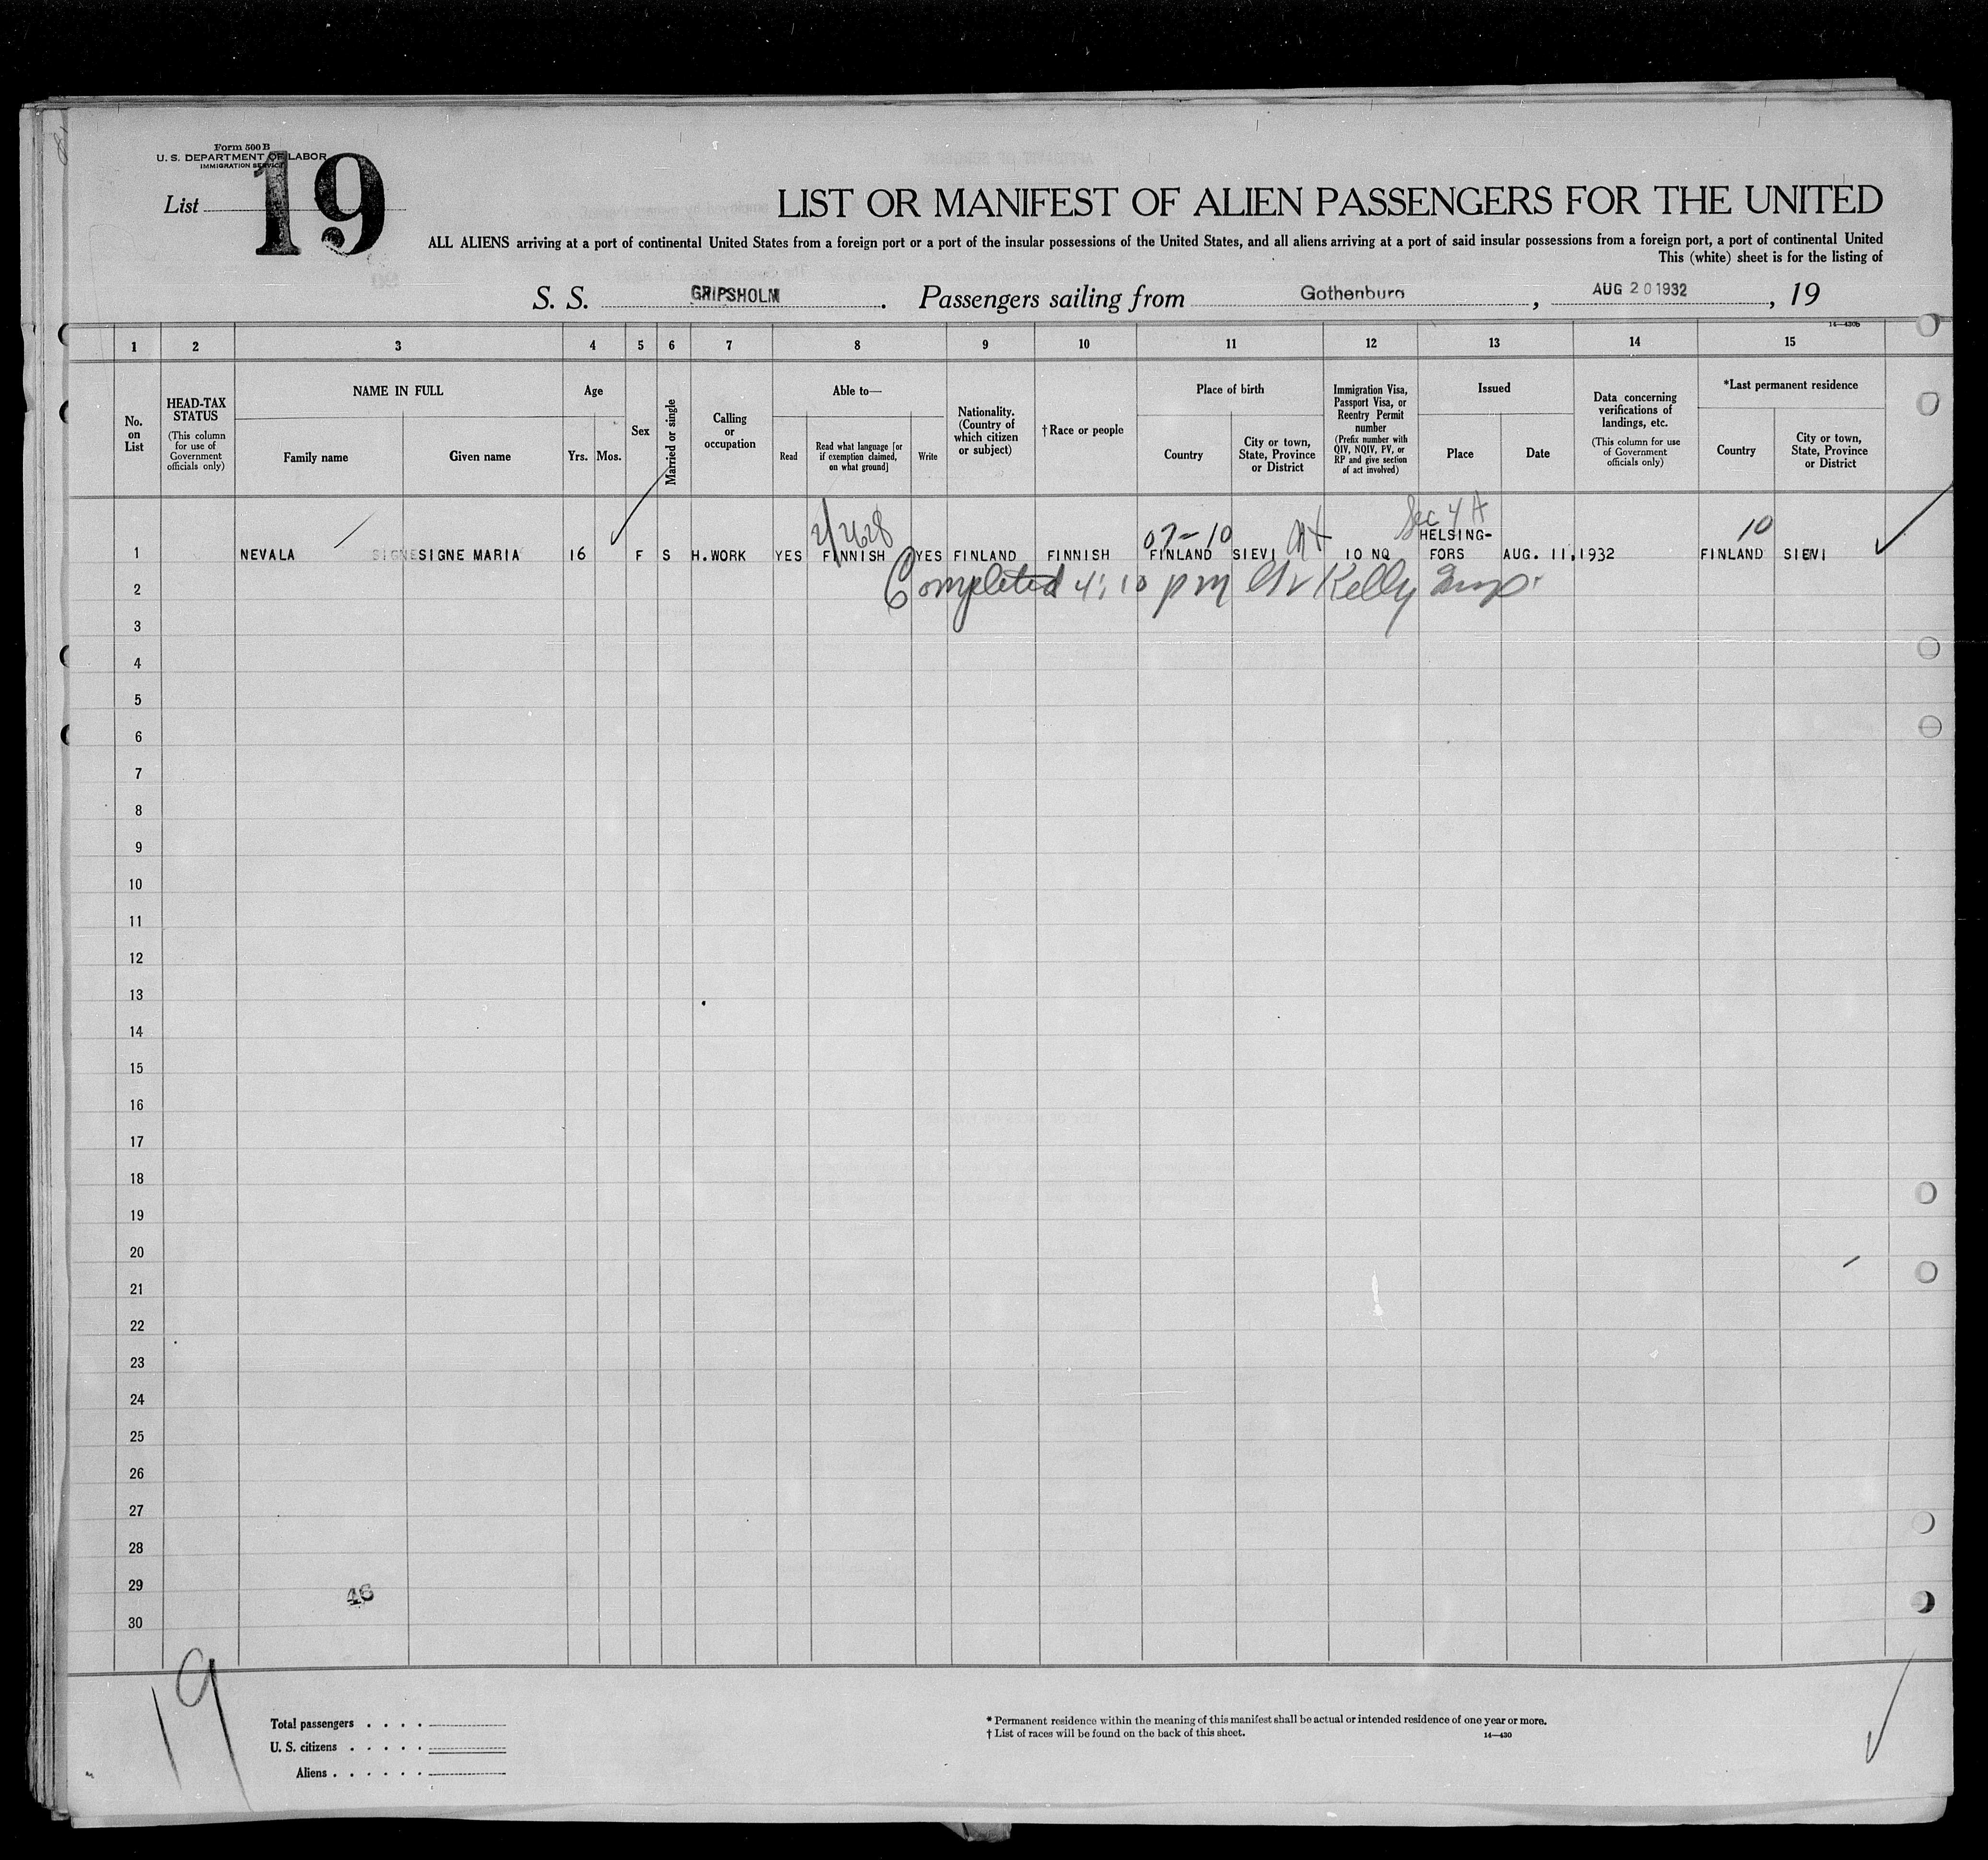 Form 500 B
U. S. DEPARTMENT OF LABOR
IMMIGRATION SERVICE
List 19
LIST OR MANIFEST OF ALIEN PASSENGERS FOR THE UNITED
ALL ALIENS arriving at a port of continental United States from a foreign port or a port of the insular possessions of the United States, and all aliens arriving at a port of said insular possessions from a foreign port, a port of continental United
This (white) sheet is for the listing of
S. S. GRIPSHOLM. Passengers sailing from Gothenburg, AUG 20 1932, 19
14—430b
1 2 3 4 5 6 7 8 9 10 11 12 13 14 15
No. on List
HEAD-TAX STATUS
(This column for use of Government officials only)
NAME IN FULL
Family name
Given name
Age
Yrs.
Mos.
Sex
Married or single
Calling or occupation
Able to—
Read
Read what language [or if exemption claimed, on what ground]
Write
Nationality. (Country of which citizen or subject)
†Race or people
Place of birth
Country
City or town, State, Province or District
Immigration Visa, Passport Visa, or Reentry Permit number
(Prefix number with QIV, NQIV, PV, or RP and give section of act involved)
Issued
Place
Date
Data concerning verifications of landings, etc.
(This column for use of Government officials only)
*Last permanent residence
Country
City or town, State, Province or District
2/2628
07-10
Sec 4 A
10
HELSING-
1 NEVALA SIGNE SIGNE MARIA 16 F S H.WORK YES FINNISH YES FINLAND FINNISH FINLAND SIEVI 10 NQ FORS AUG. 11,1932 FINLAND SIEVI
2 Completed 4:10 pm Kelly Insp.
3
4
5
6
7
8
9
10
11
12
13
14
15
16
17
18
19
20
21
22
23
24
25
26
27
28
29
46
30
19
Total passengers . . . .
U. S. citizens . . . . .
Aliens . . . . . .
* Permanent residence within the meaning of this manifest shall be actual or intended residence of one year or more.
† List of races will be found on the back of this sheet.
14—430